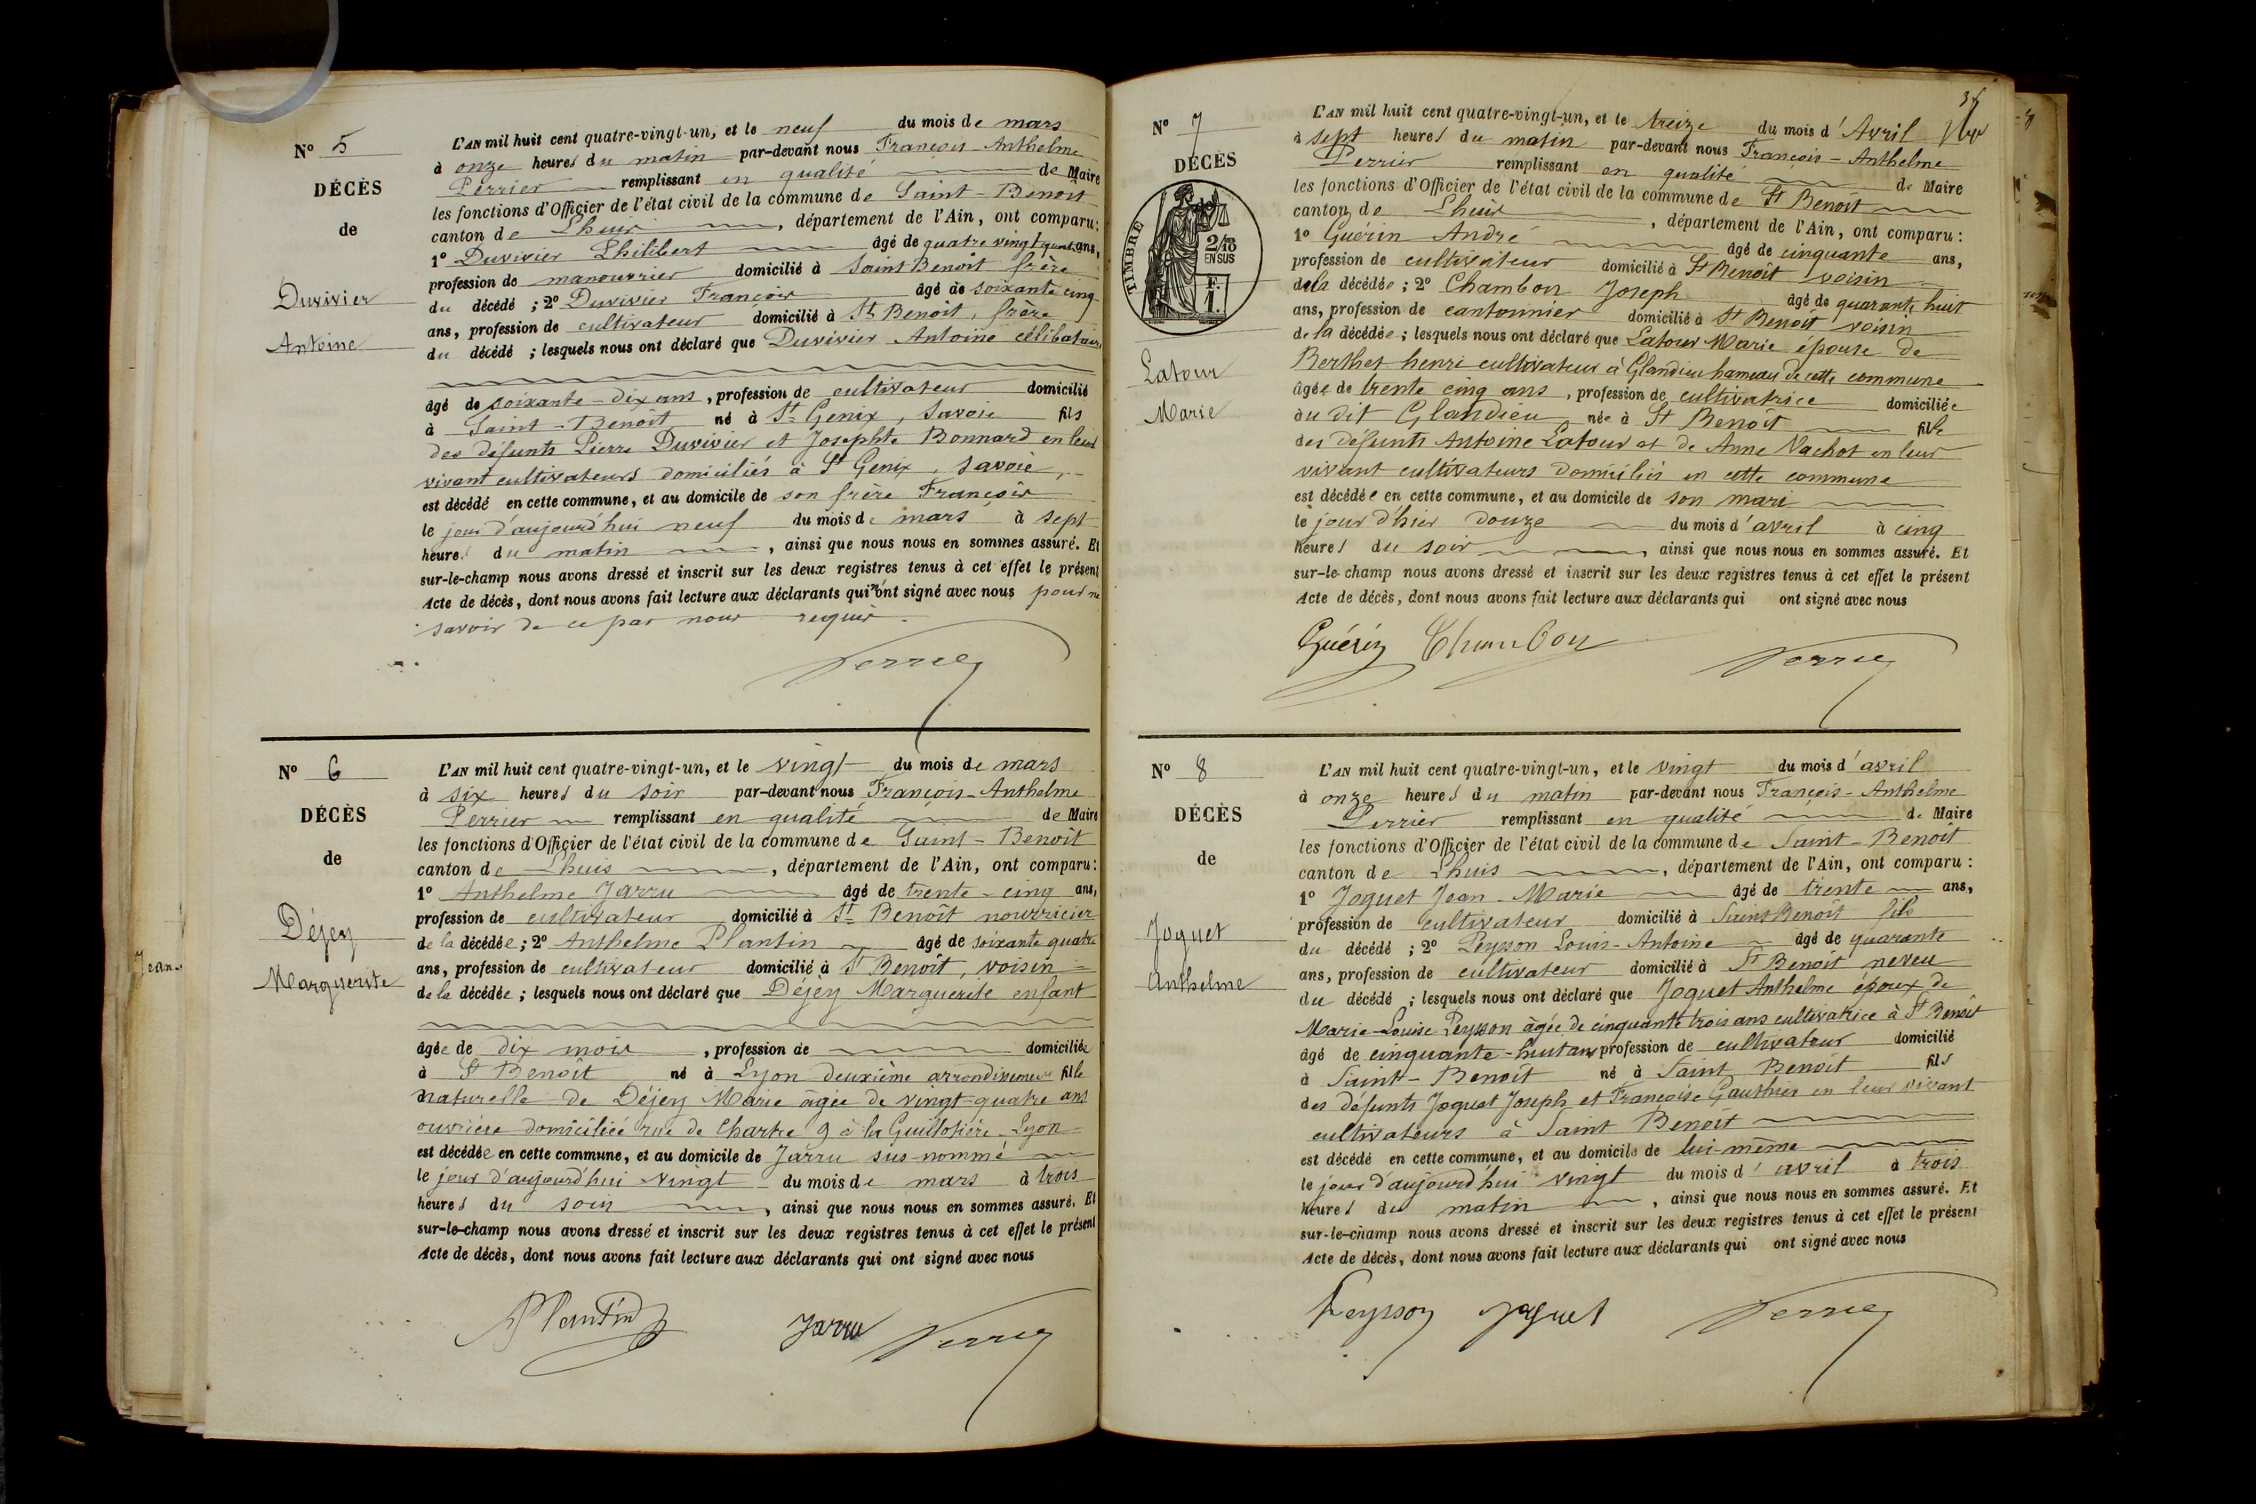 Nº 5
DÉCÈS
de
Duvivier
Antoine
L'AN mil huit cent quatre-vingt-un, et le neuf du mois de mars
à onze heures du matin par-devant nous François-Anthelme
Perrier remplissant en qualité de Maire
les fonctions d'Officier de l'état civil de la commune de Saint-Benoit
canton de Lhuis, département de l'Ain, ont comparu:
1º Duvivier Philibert âgé de quatre vingt ans,
profession de manouvrier domicilié à Saint Benoit frère
du décédé ; 2º Duvivier François âgé de soixante cinq
ans, profession de cultivateur domicilié à St Benoit, frère
du décédé ; lesquels nous ont déclaré que Duvivier Antoine célibataire
âgé de soixante-dix ans, profession de cultivateur domicilié
à Saint-Benoit né à St Genix, Savoie fils
des défunts Pierre Duvivier et Josephte Bonnard en leur
vivant cultivateurs domiciliés à St Genix, Savoie,
est décédé en cette commune, et au domicile de son frère François
le jour d'aujourd'hui neuf du mois de mars à sept
heures du matin, ainsi que nous nous en sommes assuré. Et
sur-le-champ nous avons dressé et inscrit sur les deux registres tenus à cet effet le présent
Acte de décès, dont nous avons fait lecture aux déclarants qui n'ont signé avec nous pour ne
savoir de ce par nous requis.
Perrier
Nº 6
DÉCÈS
de
Déjey
Marguerite
L'AN mil huit cent quatre-vingt-un, et le vingt du mois de mars
à six heures du soir par-devant nous François-Anthelme
Perrier remplissant en qualité de Maire
les fonctions d'Officier de l'état civil de la commune de Saint-Benoît
canton de Lhuis, département de l'Ain, ont comparu:
1º Anthelme Jarru âgé de trente-cinq ans,
profession de cultivateur domicilié à St Benoît nourricier
de la décédée ; 2º Anthelme Plantin âgé de soixante quatre
ans, profession de cultivateur domicilié à St Benoît, voisin
de la décédée ; lesquels nous ont déclaré que Déjey Marguerite enfant
âgée de dix mois, profession de domiciliée
à St Benoît né à Lyon deuxième arrondissement fille
naturelle de Déjey Marie agée de vingt-quatre ans
ouvrière domiciliée rue de Chartre 9 à la Guillotière Lyon
est décédée en cette commune, et au domicile de Jarru sus-nommé
le jour d'aujourd'hui vingt du mois de mars à trois
heures du soir, ainsi que nous nous en sommes assuré. Et
sur-le-champ nous avons dressé et inscrit sur les deux registres tenus à cet effet le présent
Acte de décès, dont nous avons fait lecture aux déclarants qui ont signé avec nous
Plantin Jarru Perrier
Jean
Nº 7
DÉCÈS
de
TIMBRE
2/10
EN SUS
F.
1.
Latour
Marie
L'AN mil huit cent quatre-vingt-un, et le treize du mois d'Avril
à sept heures du matin par-devant nous François-Anthelme
Perrier remplissant en qualité de Maire
les fonctions d'Officier de l'état civil de la commune de St Benoit
canton de Lhuis, département de l'Ain, ont comparu:
1º Guérin André âgé de cinquante ans,
profession de cultivateur domicilié à St Benoît voisin
de la décédée ; 2º Chambon Joseph âgé de quarante huit
ans, profession de cantonnier domicilié à St Benoit voisin
de la décédée ; lesquels nous ont déclaré que Latour Marie épouse de
Berthet henri cultivateur à Glandieu hameau de cette commune
âgée de trente cinq ans, profession de cultivatrice domiciliée
au dit Glandieu née à St Benoît fille
des défunts Antoine Latour et de Anne Vachot en leur
vivant cultivateurs domiciliés en cette commune
est décédée en cette commune, et au domicile de son mari
le jour d'hier douze du mois d'avril à cinq
heures du soir, ainsi que nous nous en sommes assuré. Et
sur-le-champ nous avons dressé et inscrit sur les deux registres tenus à cet effet le présent
Acte de décès, dont nous avons fait lecture aux déclarants qui ont signé avec nous
Guérin Chambon Perrier
Nº 8
DÉCÈS
de
Joguet
Anthelme
L'AN mil huit cent quatre-vingt-un, et le vingt du mois d'avril
à onze heures du matin par-devant nous François-Anthelme
Perrier remplissant en qualité de Maire
les fonctions d'Officier de l'état civil de la commune de Saint-Benoît
canton de Lhuis, département de l'Ain, ont comparu:
1º Joguet Jean-Marie âgé de trente ans,
profession de cultivateur domicilié à Saint Benoit fils
du décédé ; 2º Peysson Louis-Antoine âgé de quarante
ans, profession de cultivateur domicilié à St Benoit neveu
du décédé ; lesquels nous ont déclaré que Joguet Anthelme époux de
Marie-Louise Peysson âgée de cinquante trois ans cultivatrice à St Benoit
âgé de cinquante-huit ans profession de cultivateur domicilié
à Saint-Benoît né à Saint Benoit fils
des défunts Joguet Joseph et Françoise Gauthier en leur vivant
cultivateurs à Saint Benoît
est décédé en cette commune, et au domicile de lui-même
le jour d'aujourd'hui vingt du mois d'avril à trois
heures du matin, ainsi que nous nous en sommes assuré. Et
sur-le-champ nous avons dressé et inscrit sur les deux registres tenus à cet effet le présent
Acte de décès, dont nous avons fait lecture aux déclarants qui ont signé avec nous
Peysson Joguet Perrier